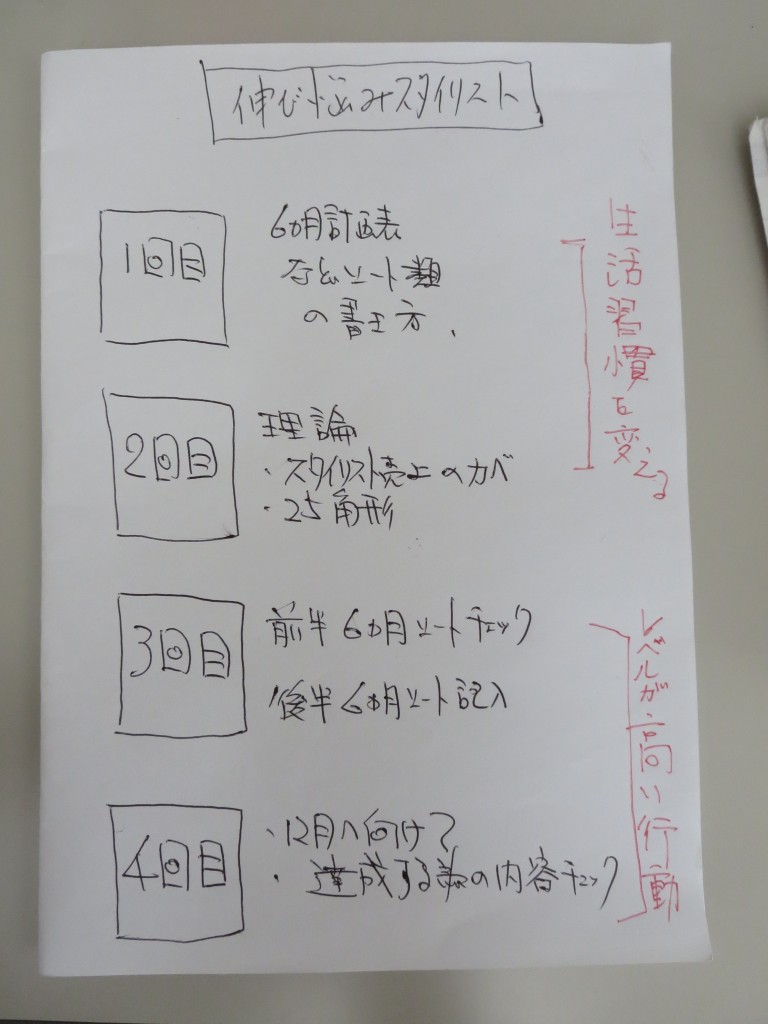 伸び悩みスタイリスト
1回目
6カ月計画表
などシート類
の書き方、
2回目
理論
・スタイリスト売上のカベ
・25角形
3回目
前半6カ月シートチェック
後半6カ月シート記入
4回目
・12月へ向けて
・達成する為の内容チェック
生活習慣を変える
レベルが高い行動